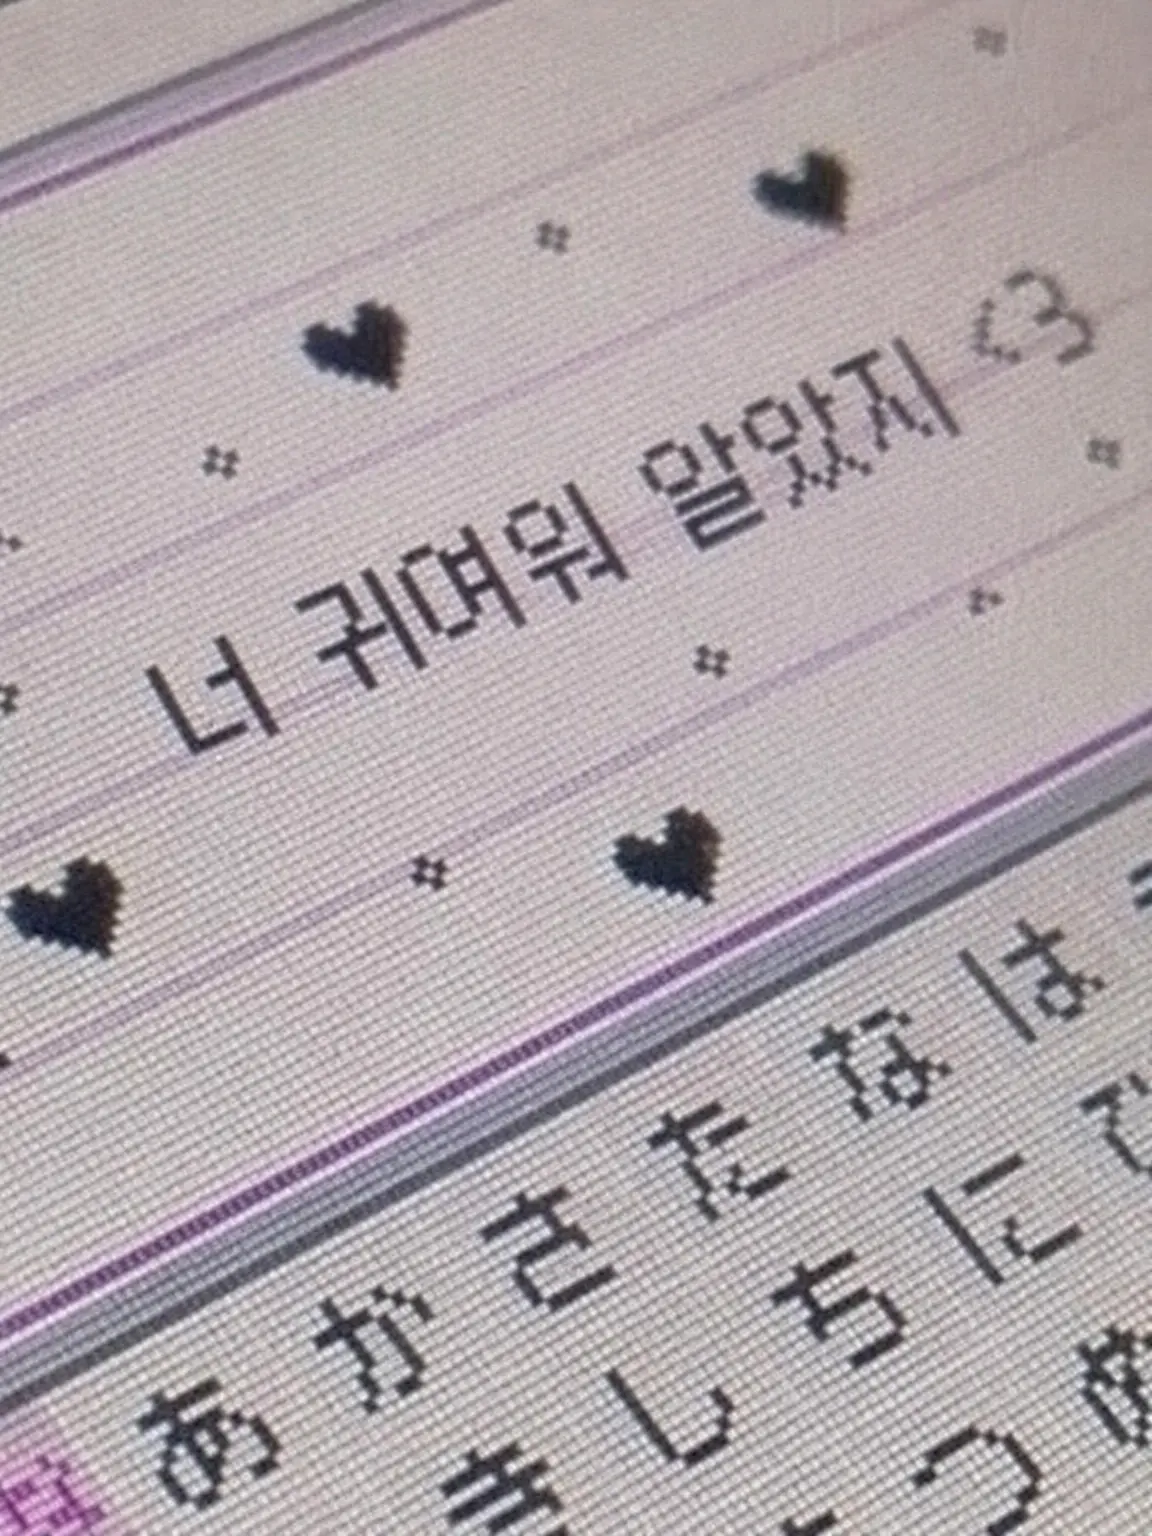 너 귀여워 알았지 <3
あ か さ た な は
き し ち に ひ
つ ぬ